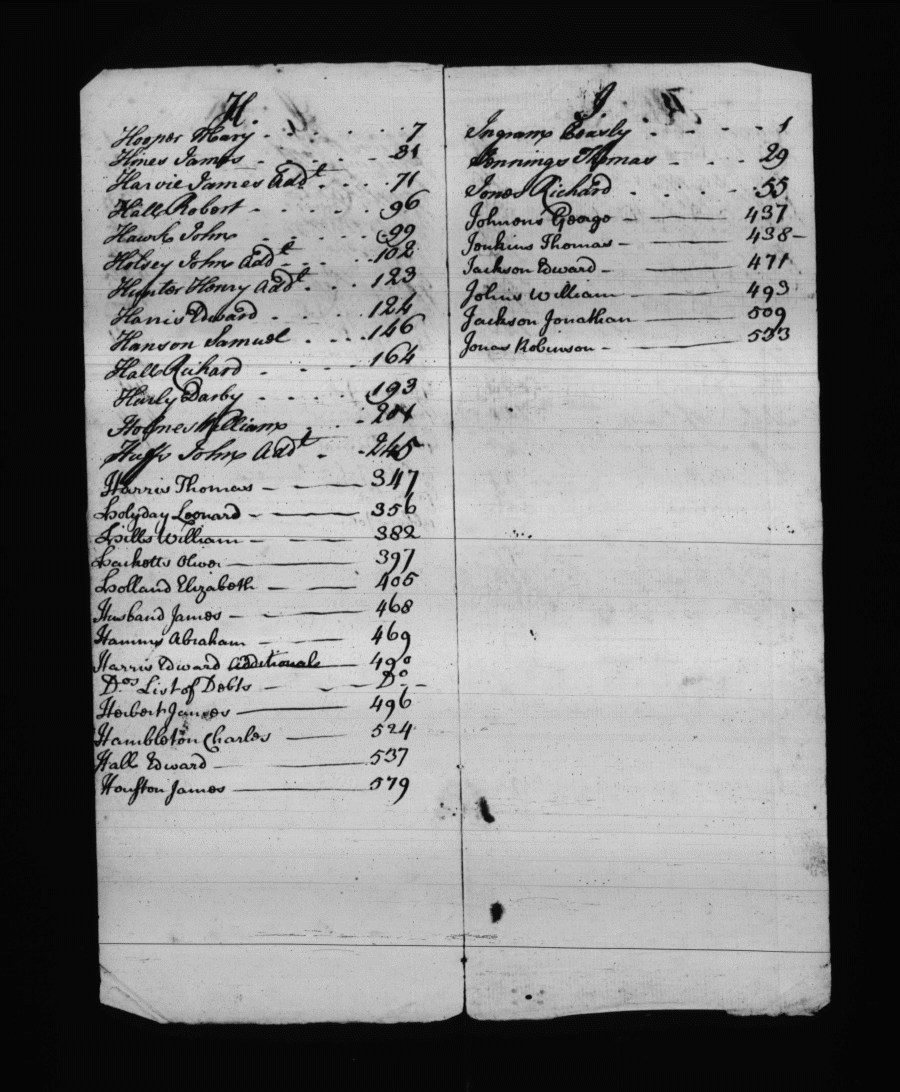 H.
Hooper Mary - - - - 7
Hines James - - - - 31
Harvie James Addt. - - - 71
Hall Robert - - - - 96
Hawk John - - - - 99
Holsey John Addt - - - 102
Hunter Henry Addt - - - 123
Harris Edward - - - 124
Hanson Samuel - - - 146
Hall Richard - - - 164
Hurly Darby - - - - 193
Holmes William - - 201
Huff John Addt - - 245
Harris Thomas - 347
Holyday Leonard - 356
Hills William - 382
Hacketts Oliver - 397
Holland Elizabeth - 405
Husband James - 468
Hamms Abraham - 469
Harris Edward Additionals 490
Dos. List of Debts - Do
Herbert James - 496
Hambleton Charles - 524
Hall Edward - 537
Houston James - 579
J.
Ingram Beasly - - - 1
Jennings Thomas - - - 29
Jones Richard - - - 55
Johnons George - 437
Jenkins Thomas - 438
Jackson Edward - 471
Johns William - 493
Jackson Jonathan 509
Jonas Robinson - 533